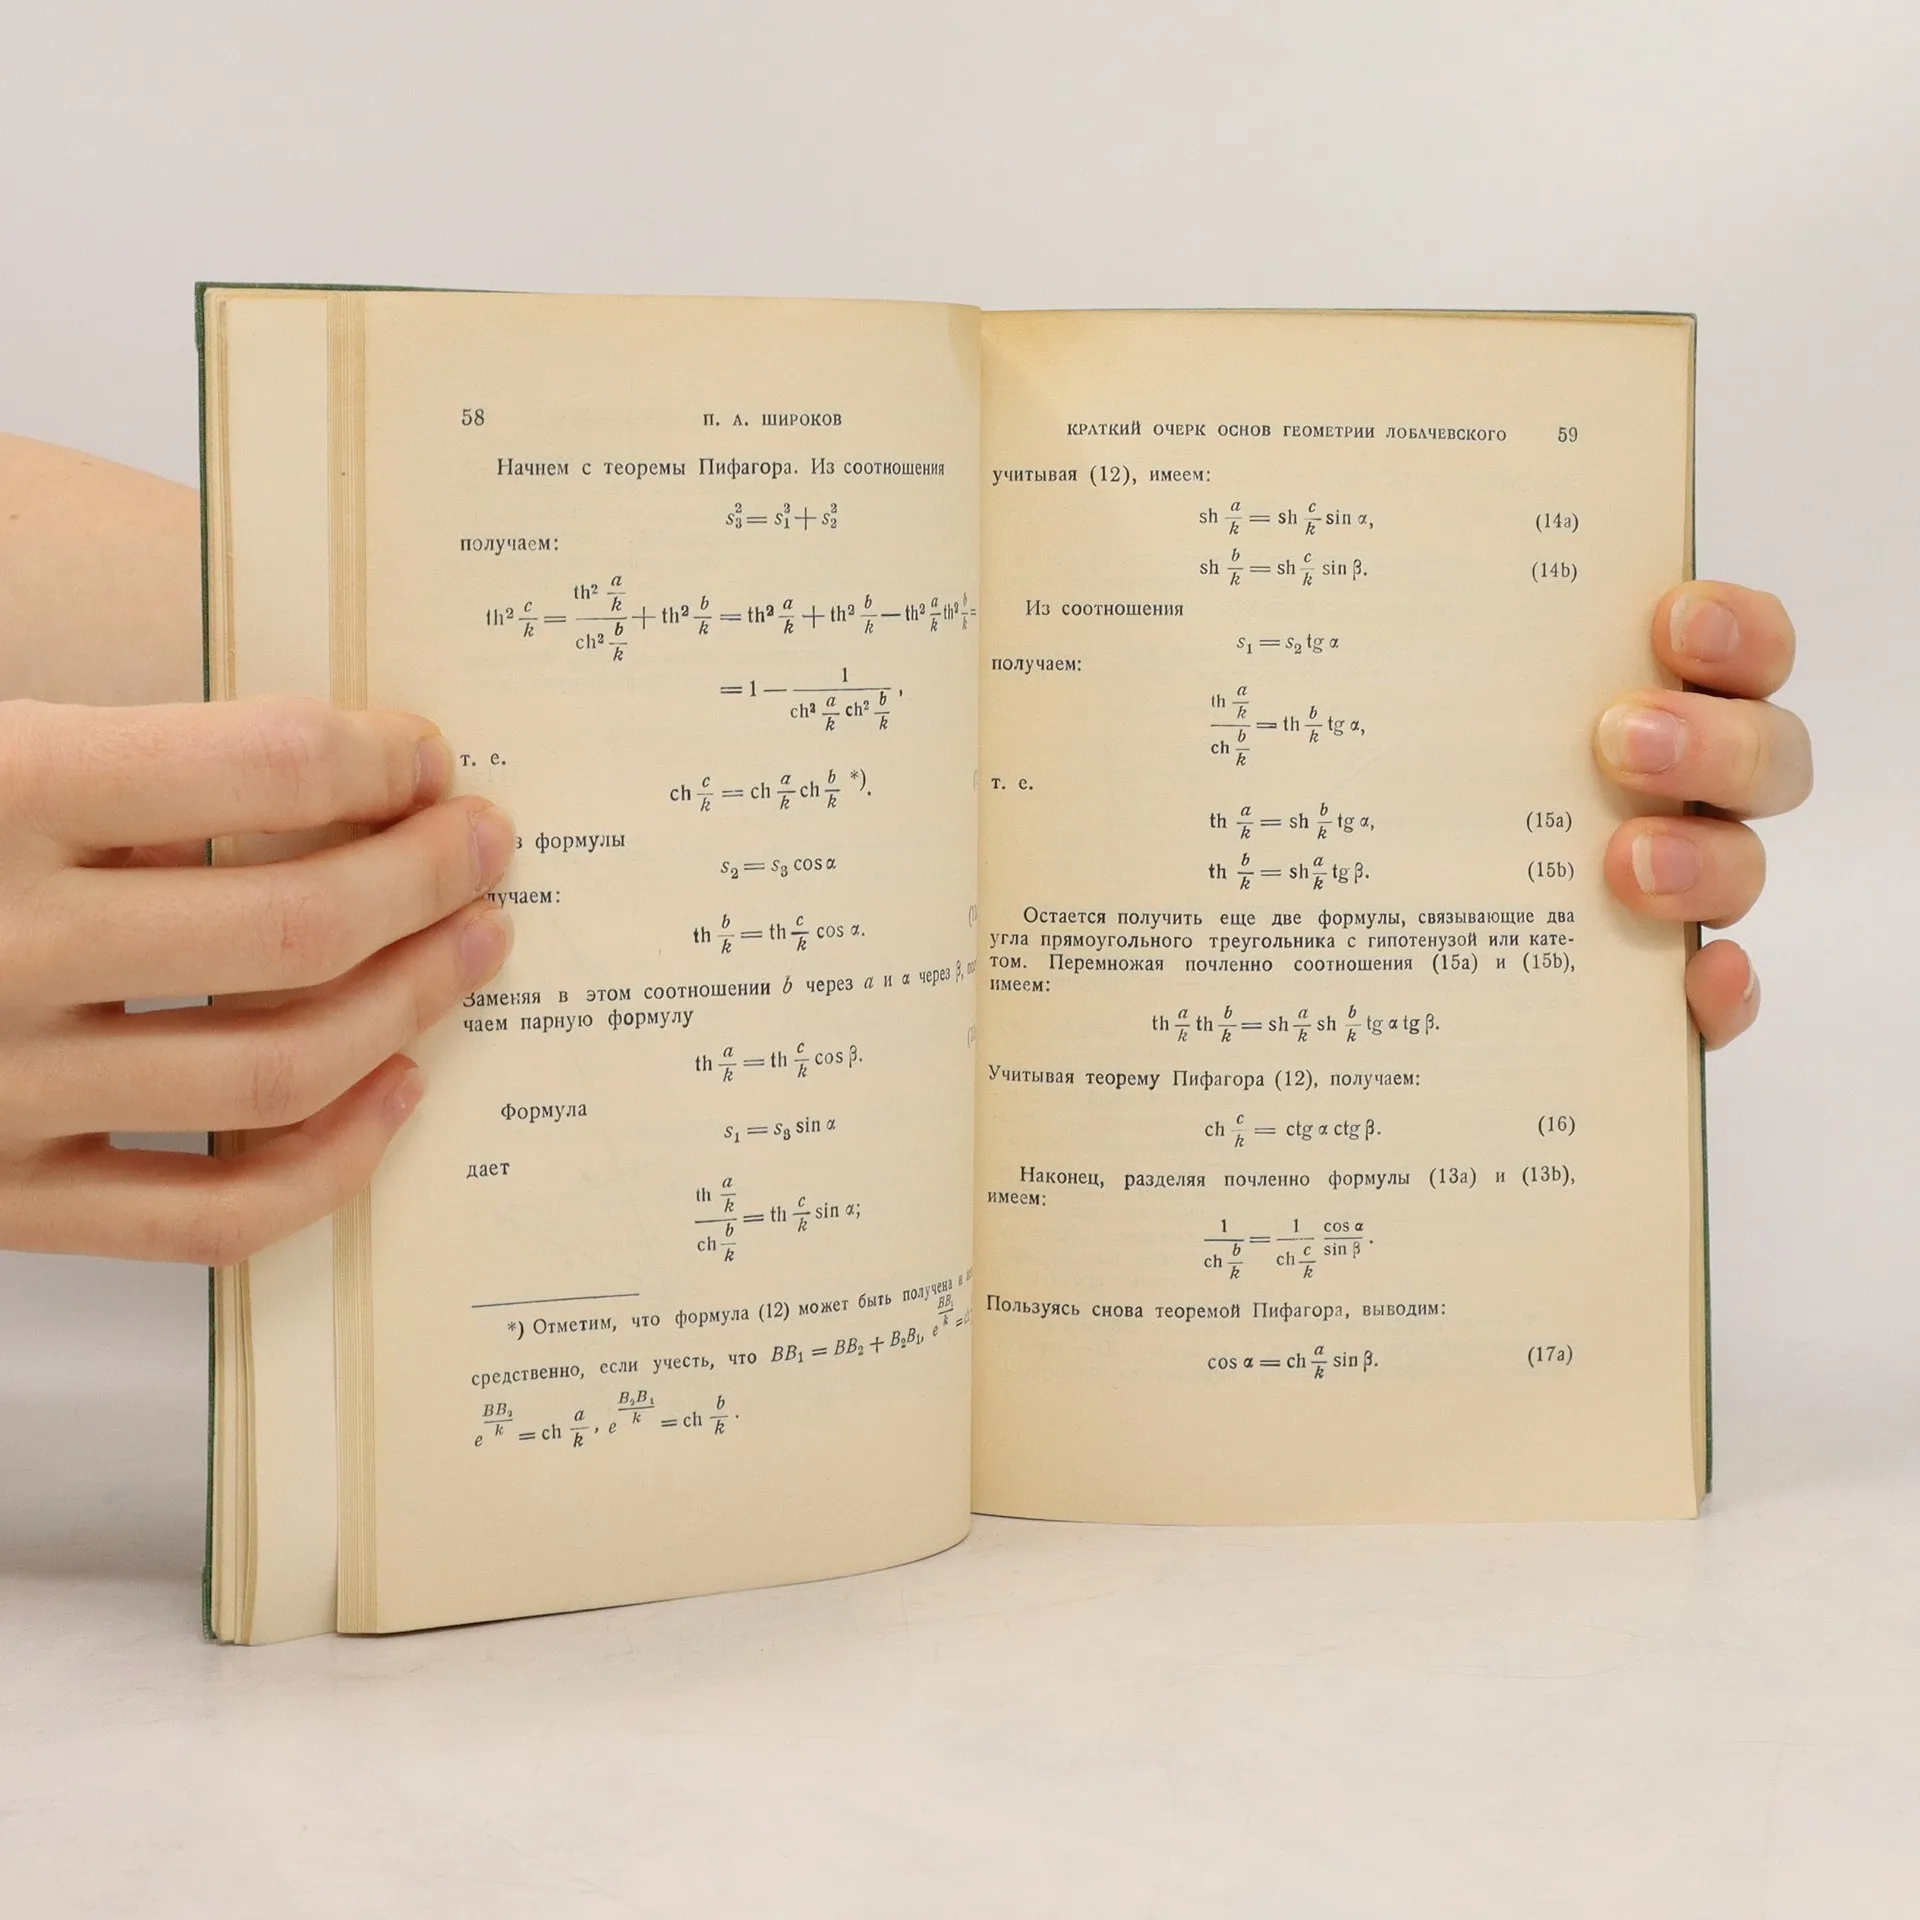 58
П. А. ШИРОКОВ
Начнем с теоремы Пифагора. Из соотношения
s₃² = s₁² + s₂²
получаем:
th² c/k = (th² a/k)/(ch² b/k) + th² b/k = th² a/k + th² b/k — th² a/k th² b/k =
= 1 — 1/(ch² a/k ch² b/k),
т. е.
ch c/k = ch a/k ch b/k *).
формулы
s₂ = s₃ cos α
th b/k = th c/k cos α.
Заменяя в этом соотношении b через a и α через β,
чаем парную формулу
th a/k = th c/k cos β.
Формула
s₁ = s₃ sin α
дает
(th a/k)/(ch b/k) = th c/k sin α;
*) Отметим, что формула (12) может быть получена и
средственно, если учесть, что BB₁ = BB₂ + B₂B₁, e^(BB₁/k) =
e^(BB₂/k) = ch a/k, e^(B₂B₁/k) = ch b/k.
КРАТКИЙ ОЧЕРК ОСНОВ ГЕОМЕТРИИ ЛОБАЧЕВСКОГО 59
учитывая (12), имеем:
sh a/k = sh c/k sin α, (14a)
sh b/k = sh c/k sin β. (14b)
Из соотношения
s₁ = s₂ tg α
получаем:
(th a/k)/(ch b/k) = th b/k tg α,
т. е.
th a/k = sh b/k tg α, (15a)
th b/k = sh a/k tg β. (15b)
Остается получить еще две формулы, связывающие два
угла прямоугольного треугольника с гипотенузой или кате-
том. Перемножая почленно соотношения (15a) и (15b),
имеем:
th a/k th b/k = sh a/k sh b/k tg α tg β.
Учитывая теорему Пифагора (12), получаем:
ch c/k = ctg α ctg β. (16)
Наконец, разделяя почленно формулы (13a) и (13b),
имеем:
1/(ch b/k) = 1/(ch c/k) cos α/sin β.
Пользуясь снова теоремой Пифагора, выводим:
cos α = ch a/k sin β. (17a)